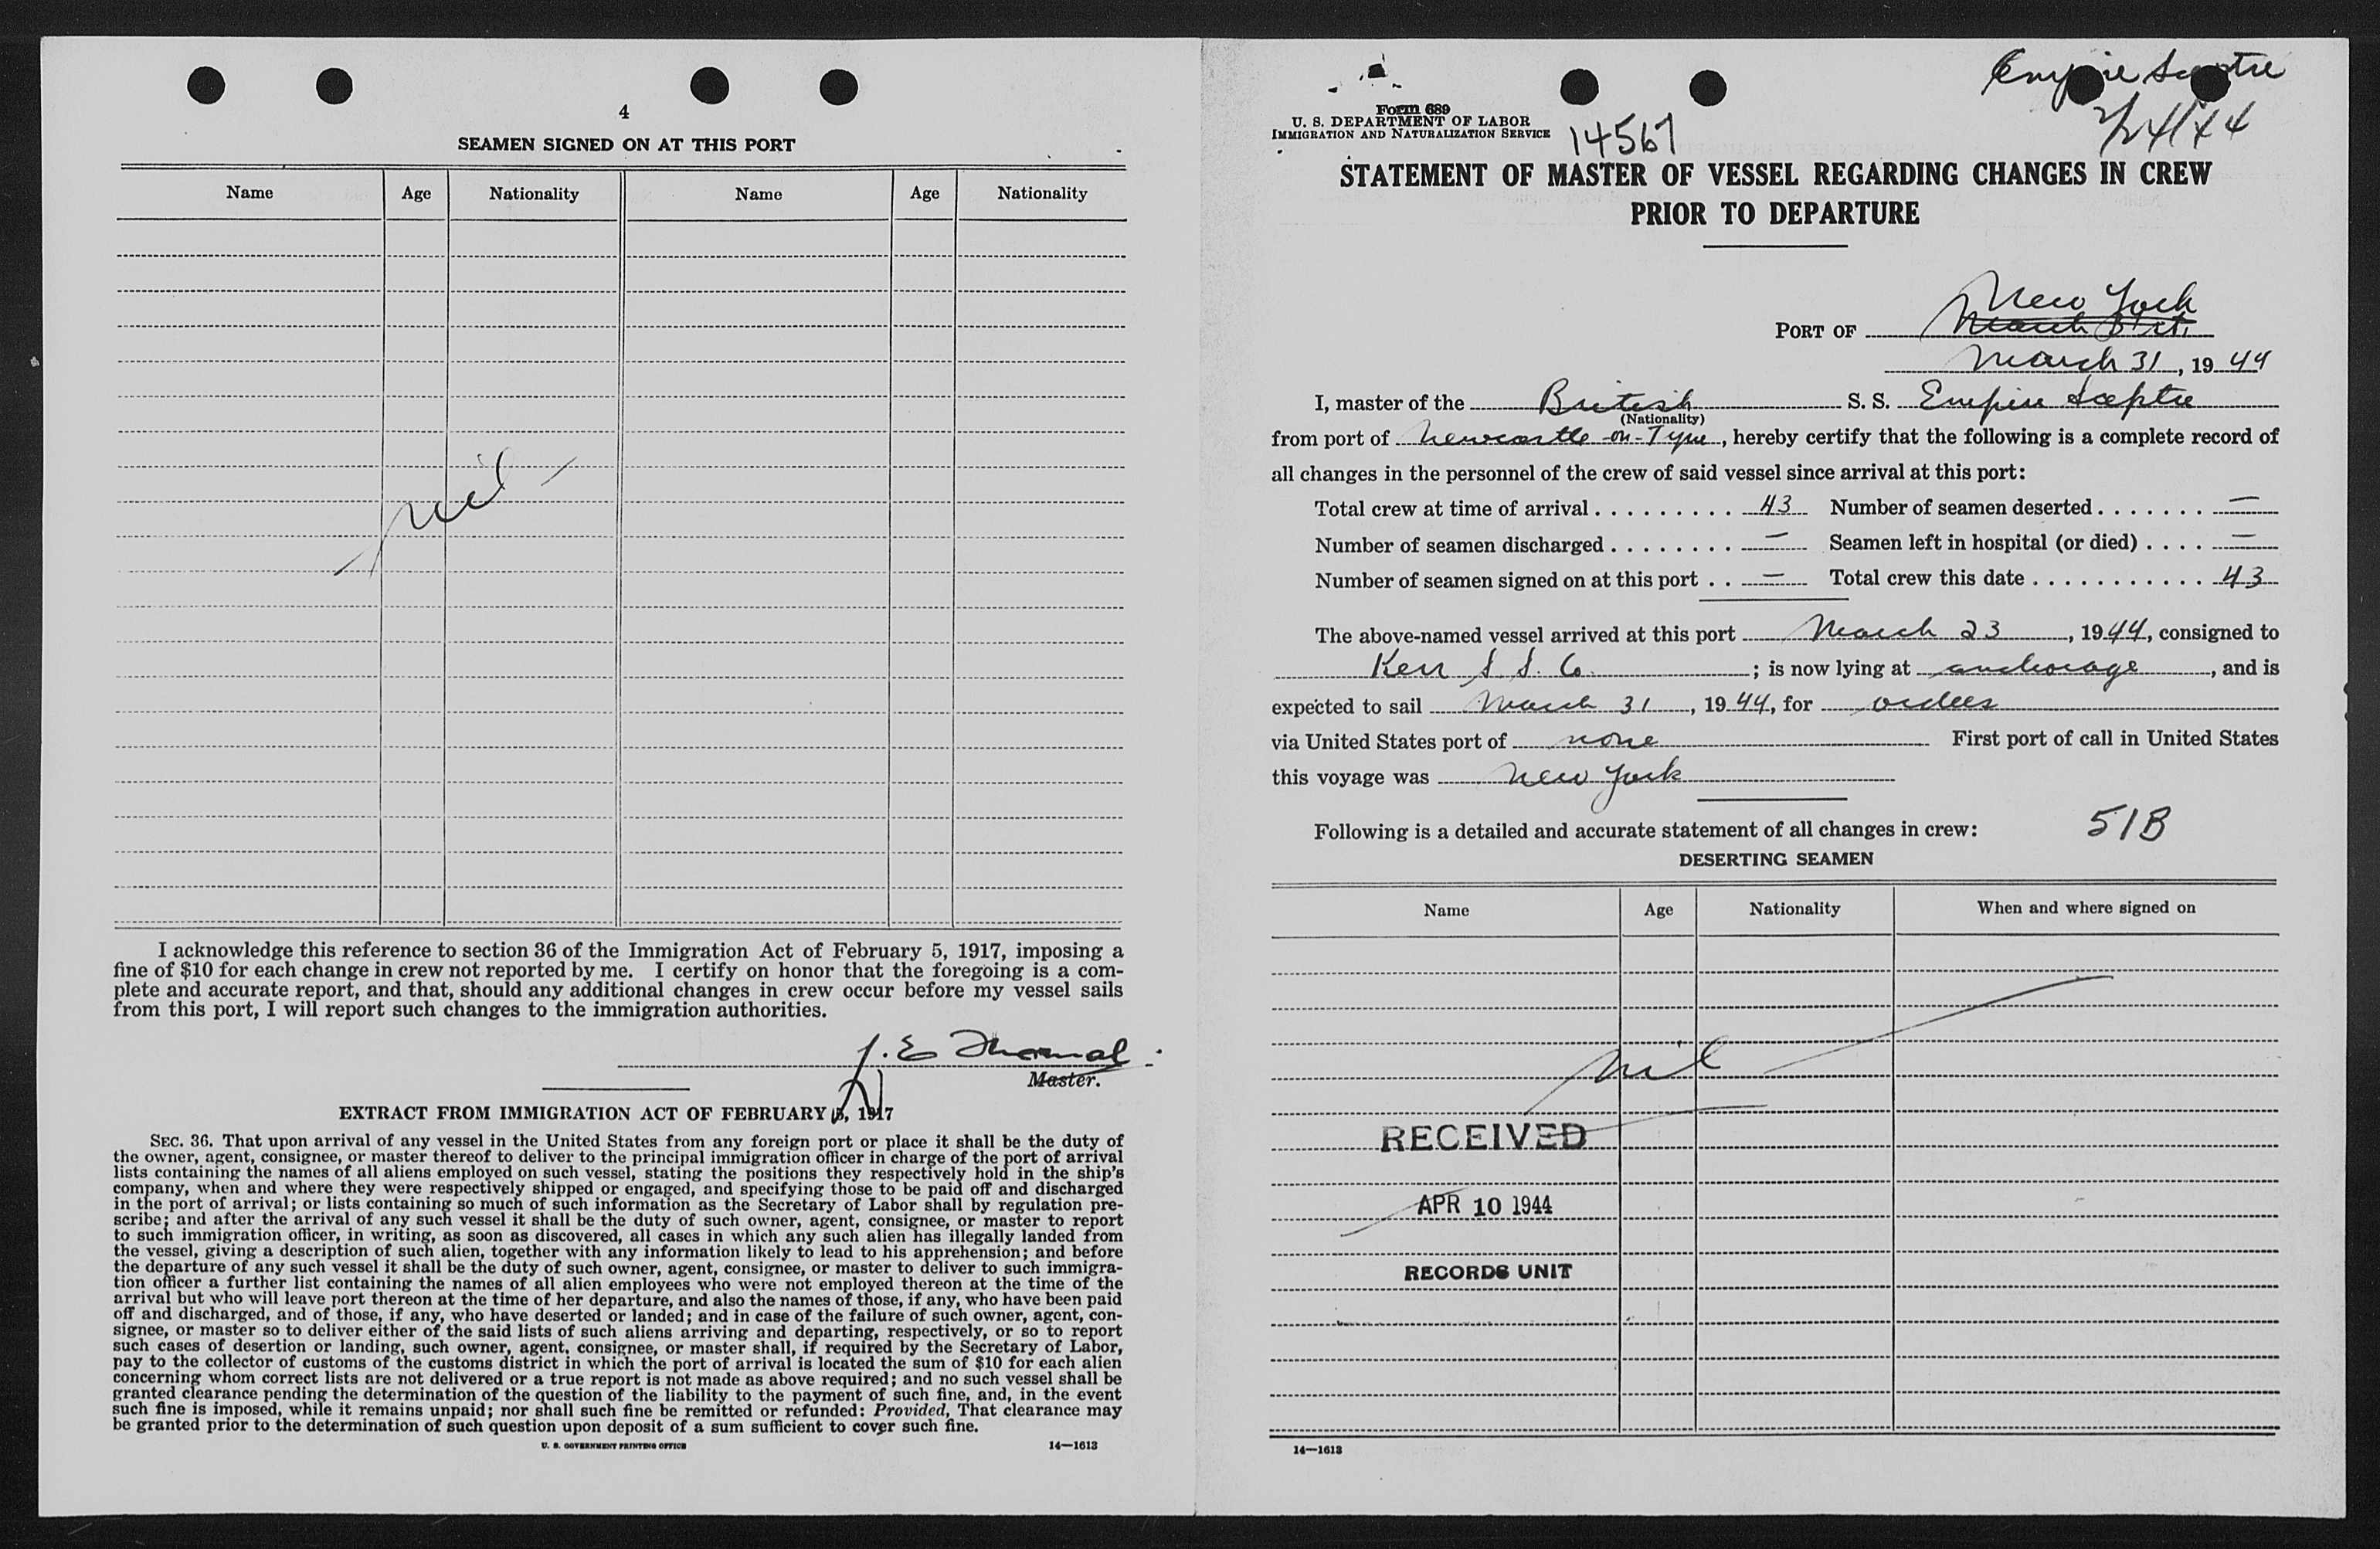 4
SEAMEN SIGNED ON AT THIS PORT
Name Age Nationality Name Age Nationality
nil
I acknowledge this reference to section 36 of the Immigration Act of February 5, 1917, imposing a
fine of $10 for each change in crew not reported by me. I certify on honor that the foregoing is a com-
plete and accurate report, and that, should any additional changes in crew occur before my vessel sails
from this port, I will report such changes to the immigration authorities.
J. E.
Master.
EXTRACT FROM IMMIGRATION ACT OF FEBRUARY 5, 1917
SEC. 36. That upon arrival of any vessel in the United States from any foreign port or place it shall be the duty of
the owner, agent, consignee, or master thereof to deliver to the principal immigration officer in charge of the port of arrival
lists containing the names of all aliens employed on such vessel, stating the positions they respectively hold in the ship's
company, when and where they were respectively shipped or engaged, and specifying those to be paid off and discharged
in the port of arrival; or lists containing so much of such information as the Secretary of Labor shall by regulation pre-
scribe; and after the arrival of any such vessel it shall be the duty of such owner, agent, consignee, or master to report
to such immigration officer, in writing, as soon as discovered, all cases in which any such alien has illegally landed from
the vessel, giving a description of such alien, together with any information likely to lead to his apprehension; and before
the departure of any such vessel it shall be the duty of such owner, agent, consignee, or master to deliver to such immigra-
tion officer a further list containing the names of all alien employees who were not employed thereon at the time of the
arrival but who will leave port thereon at the time of her departure, and also the names of those, if any, who have been paid
off and discharged, and of those, if any, who have deserted or landed; and in case of the failure of such owner, agent, con-
signee, or master so to deliver either of the said lists of such aliens arriving and departing, respectively, or so to report
such cases of desertion or landing, such owner, agent, consignee, or master shall, if required by the Secretary of Labor,
pay to the collector of customs of the customs district in which the port of arrival is located the sum of $10 for each alien
concerning whom correct lists are not delivered or a true report is not made as above required; and no such vessel shall be
granted clearance pending the determination of the question of the liability to the payment of such fine, and, in the event
such fine is imposed, while it remains unpaid; nor shall such fine be remitted or refunded: Provided, That clearance may
be granted prior to the determination of such question upon deposit of a sum sufficient to cover such fine.
U. S. GOVERNMENT PRINTING OFFICE 14—1613
Empire Sceptre
Form 689
U. S. DEPARTMENT OF LABOR
IMMIGRATION AND NATURALIZATION SERVICE
14567
STATEMENT OF MASTER OF VESSEL REGARDING CHANGES IN CREW
PRIOR TO DEPARTURE
New York
PORT OF March 31st
March 31, 1944
I, master of the British S. S. Empire Sceptre
(Nationality)
from port of Newcastle-on-Tyne, hereby certify that the following is a complete record of
all changes in the personnel of the crew of said vessel since arrival at this port:
Total crew at time of arrival . . . . . . . . . . 43 Number of seamen deserted . . . . . . . —
Number of seamen discharged . . . . . . . . — Seamen left in hospital (or died) . . . . —
Number of seamen signed on at this port . . — Total crew this date . . . . . . . . . . . . 43
The above-named vessel arrived at this port March 23, 1944, consigned to
Kerr S. S. Co. ; is now lying at anchorage, and is
expected to sail March 31, 1944, for orders
via United States port of none First port of call in United States
this voyage was New York
Following is a detailed and accurate statement of all changes in crew: 51B
DESERTING SEAMEN
Name Age Nationality When and where signed on
nil
RECEIVED
APR 10 1944
RECORDS UNIT
14—1613